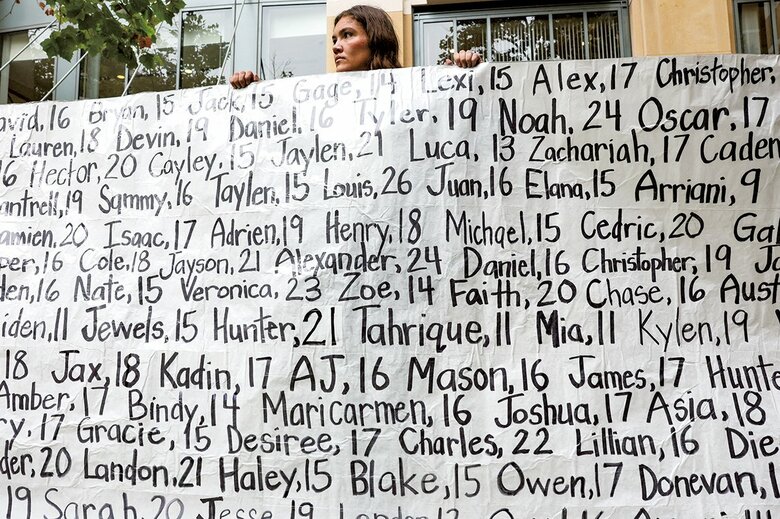 avid, 16 Bryan, 15 Jack, 15 Gage, 14 Lexi, 15 Alex, 17 Christopher,
Lauren, 18 Devin, 19 Daniel, 16 Tyler, 19 Noah, 24 Oscar, 17
16 Hector, 20 Cayley, 15 Jaylen, 21 Luca, 13 Zachariah, 17 Caden
antrell, 19 Sammy, 16 Taylen, 15 Louis, 26 Juan, 16 Elana, 15 Arriani, 9
amien, 20 Isaac, 17 Adrien, 19 Henry, 18 Michael, 15 Cedric, 20 Ga
per, 16 Cole, 18 Jayson, 21 Alexander, 24 Daniel, 16 Christopher, 19 Ja
den, 16 Nate, 15 Veronica, 23 Zoe, 14 Faith, 20 Chase, 16 Aust
iden, 11 Jewels, 15 Hunter, 21 Tahrique, 11 Mia, 11 Kylen, 19
18 Jax, 18 Kadin, 17 AJ, 16 Mason, 16 James, 17 Hunte
Amber, 17 Bindy, 14 Maricarmen, 16 Joshua, 17 Asia, 18
ry, 17 Gracie, 15 Desiree, 17 Charles, 22 Lillian, 16 Die
der, 20 Landon, 21 Haley, 15 Blake, 15 Owen, 17 Donevan, 1
19 Sarah, 20 Jesse, 19